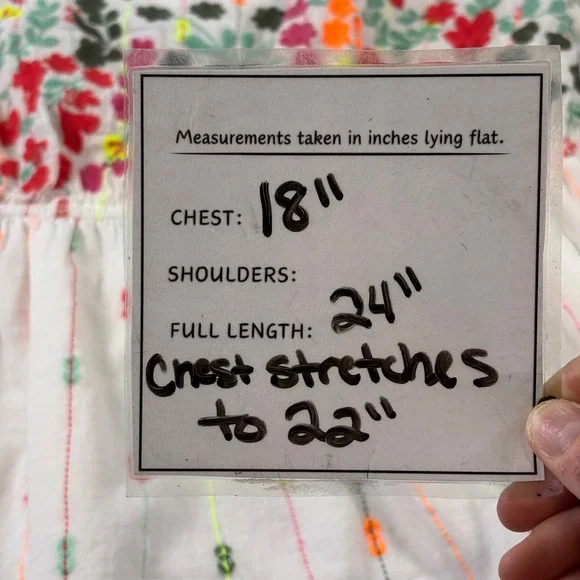 Measurements taken in inches lying flat.
CHEST: 18"
SHOULDERS:
FULL LENGTH: 24"
Chest stretches
to 22"